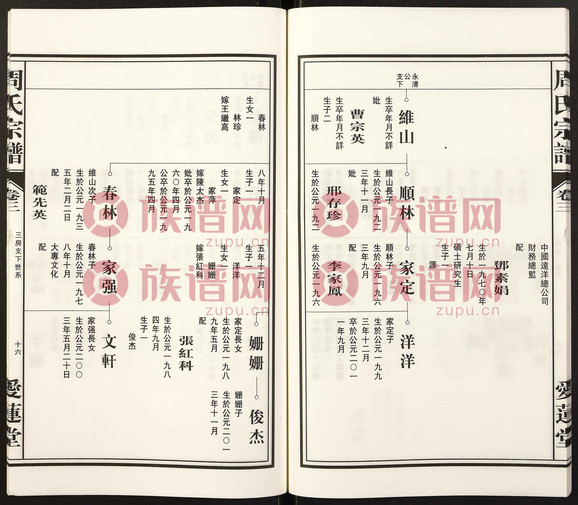 周氏宗譜
卷三
愛蓮堂
中國遠洋總公司
財務總監
配
鄧素娟
生於一九七〇年
七月十日
碩士研究生
生子一
澤
永清
公
支下
維山
生卒年月不詳
妣
曹宗英
生卒年月不詳
生子二
順林
順林
維山長子
生於公元一九二
三年十一月
妣
邢存珍
生於公元一九二
家定
順林子
生於公元一九六
三年九月
配
李家鳳
生於公元一九六
洋洋
家定子
生於公元一九九
卒於公元二〇一
九年九月
春林
生女一
林珍
嫁王繼高
八年十月
生子一
家定
生女一
家萍
嫁陳太杰
公卒於公元一九
九五年四月
妣卒於公元一九
六〇年四月
五年十二月
生子一
洋洋
生女一
姍姍
嫁張紅科
姍姍
家定長女
生於公元一九八
九年五月
配
張紅科
生於公元一九八
四年九月
生子一
俊杰
俊杰
姍姍子
生於公元二〇一
三年十一月
春林
維山次子
生於公元一九三
五年二月二日
配
範先英
家强
春林子
生於公元一九七
八年十月
大專文化
配
文軒
家强長女
生於公元二〇〇
三年五月二十日
周氏宗譜
卷三
三房支下世系
十六
愛蓮堂
族谱网
zupu.cn
族谱网
zupu.cn
族谱网
zupu.cn
族谱网
zupu.cn